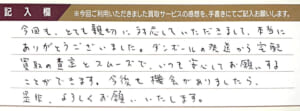 記入欄 ※今回ご利用いただきました買取サービスの感想を、手書きにてご記入お願いします。
今回も、とても親切に対応していただきまして、本当に
ありがとうございました。ダンボールの発送から宅配
買取の査定とスムーズで、いつも安心してお願いする
ことができます。今後も機会がありましたら、
是非、よろしくお願いいたします。